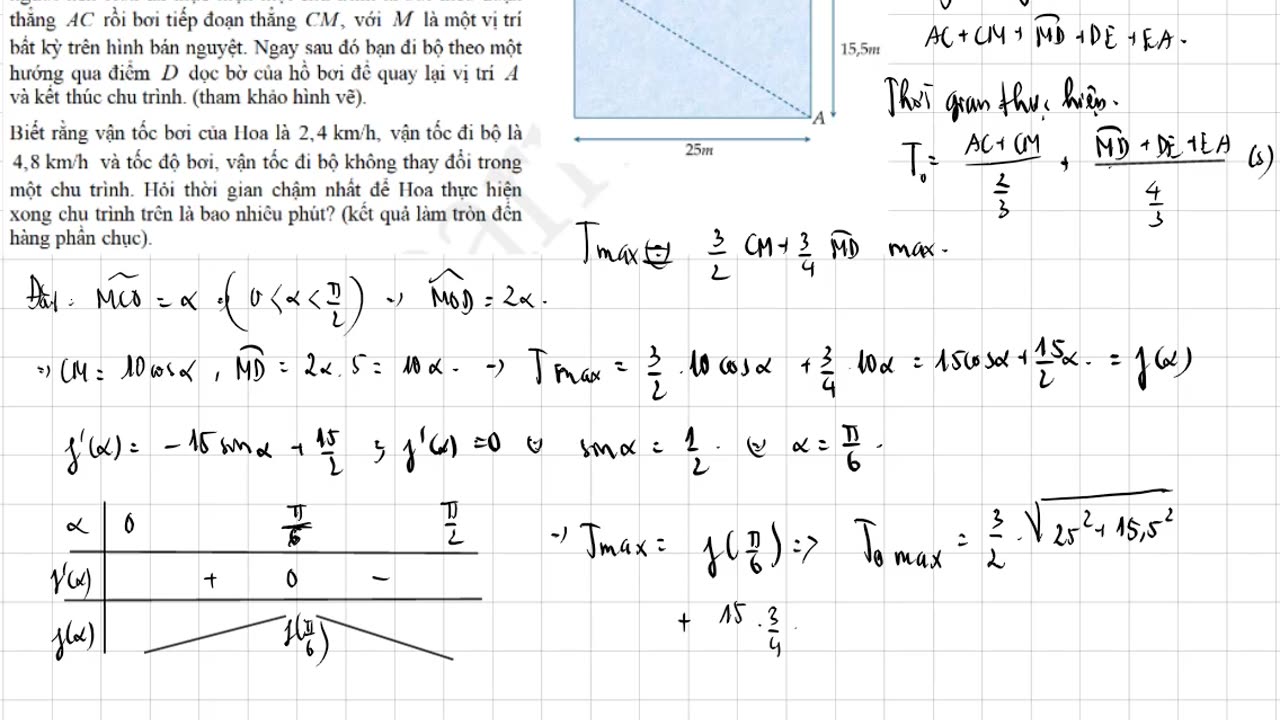 thẳng AC rồi bơi tiếp đoạn thẳng CM, với M là một vị trí
bất kỳ trên hình bán nguyệt. Ngay sau đó bạn đi bộ theo một
hướng qua điểm D dọc bờ của hồ bơi để quay lại vị trí A
và kết thúc chu trình. (tham khảo hình vẽ).
Biết rằng vận tốc bơi của Hoa là 2,4 km/h, vận tốc đi bộ là
4,8 km/h và tốc độ bơi, vận tốc đi bộ không thay đổi trong
một chu trình. Hỏi thời gian chậm nhất để Hoa thực hiện
xong chu trình trên là bao nhiêu phút? (kết quả làm tròn đến
hàng phần chục).
15,5m
A
25m
AC + CM + MD + DE + EA.
Thời gian thực hiện.
T₀ = (AC + CM)/(2/3) + (MD + DE + EA)/(4/3) (s)
Tmax ⇔ 3/2 CM + 3/4 MD max.
Đặt: MCD = α (0 < α < π/2) → MOD = 2α.
⇒ CM = 10cosα, MD = 2α.5 = 10α. → Tmax = 3/2 . 10 cosα + 3/4 . 10α = 15cosα + 15/2 α. = f(α)
f'(α) = -15 sinα + 15/2 ; f'(α) = 0 ⇔ sinα = 1/2. ⇔ α = π/6.
α 0 π/6 π/2
f'(α) + 0 -
f(α) f(π/6)
→ Tmax = f(π/6) ⇒ T₀ max = 3/2 . √(25² + 15,5²)
+ 15 . 3/4.